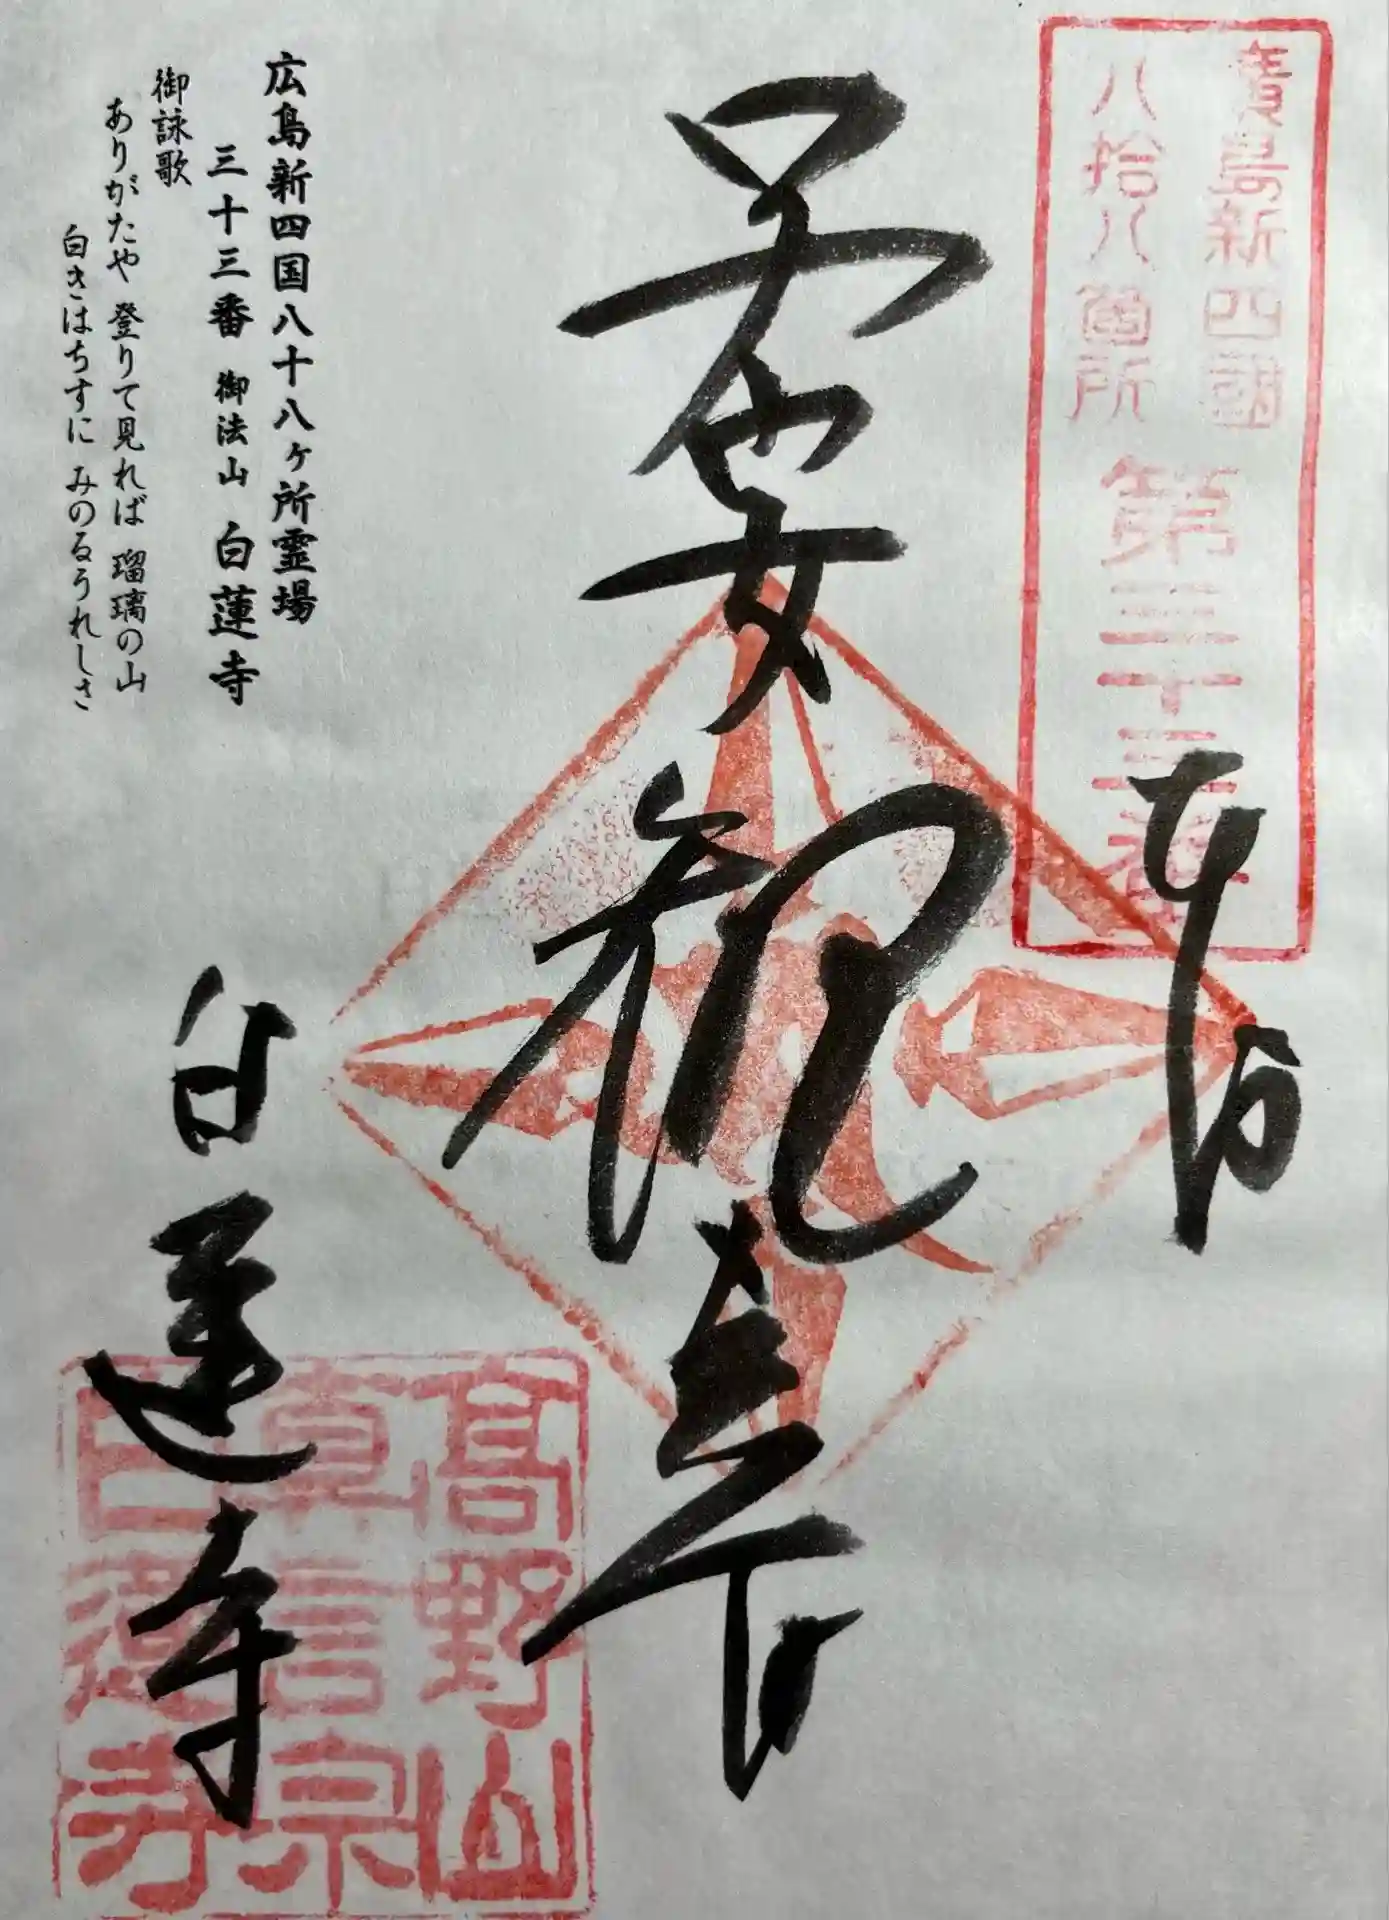 廣島新四國
八拾八箇所
第三十三番
奉拝
聖観世音
白蓮寺
高野山
真言宗
白蓮寺
広島新四国八十八ヶ所霊場
三十三番 御法山 白蓮寺
御詠歌
ありがたや 登りて見れば 瑠璃の山
白きはちすに みのるうれしさ